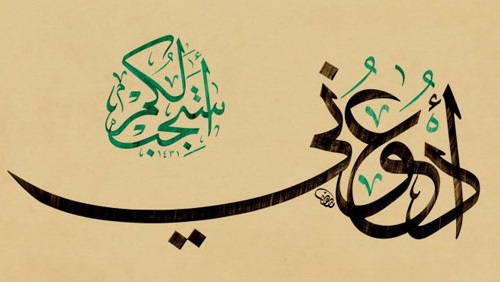 أدعوني
أستجب لكم
١٤٣١